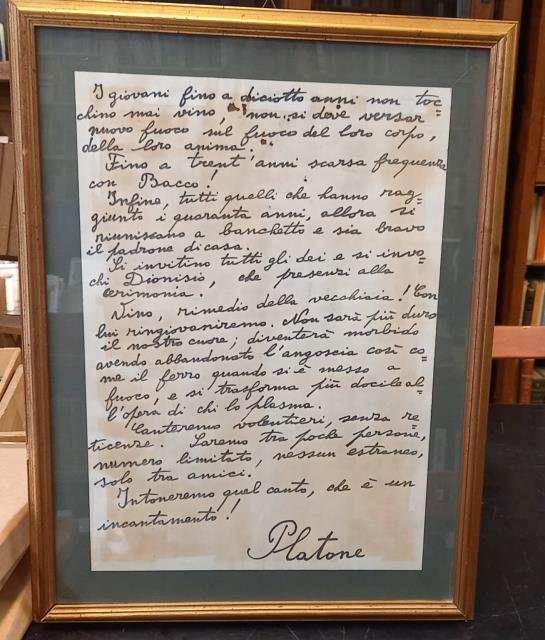 I giovani fino a diciotto anni non toc=
chino mai vino, non si deve versar
nuovo fuoco sul fuoco del loro corpo,
della loro anima.
Fino a trent'anni scarsa frequenza
con Bacco!
Infine, tutti quelli che hanno rag=
giunto i quaranta anni, allora si
riuniscano a banchetto e sia bravo
il padrone di casa.
Si invitino tutti gli dei e si invo=
chi Dionisio, che presenzi alla
cerimonia.
Vino, rimedio della vecchiaia! Con
lui ringiovaniremo. Non sarà più duro
il nostro cuore; diventerà morbido
avendo abbandonato l'angoscia così co=
me il ferro quando si è messo a
fuoco, e si trasforma più docile al=
l'opera di chi lo plasma.
Canteremo volentieri, senza re=
ticenze. Saremo tra poche persone,
numero limitato, nessun estraneo,
solo tra amici.
Intoneremo quel canto, che è un
incantamento!!
Platone